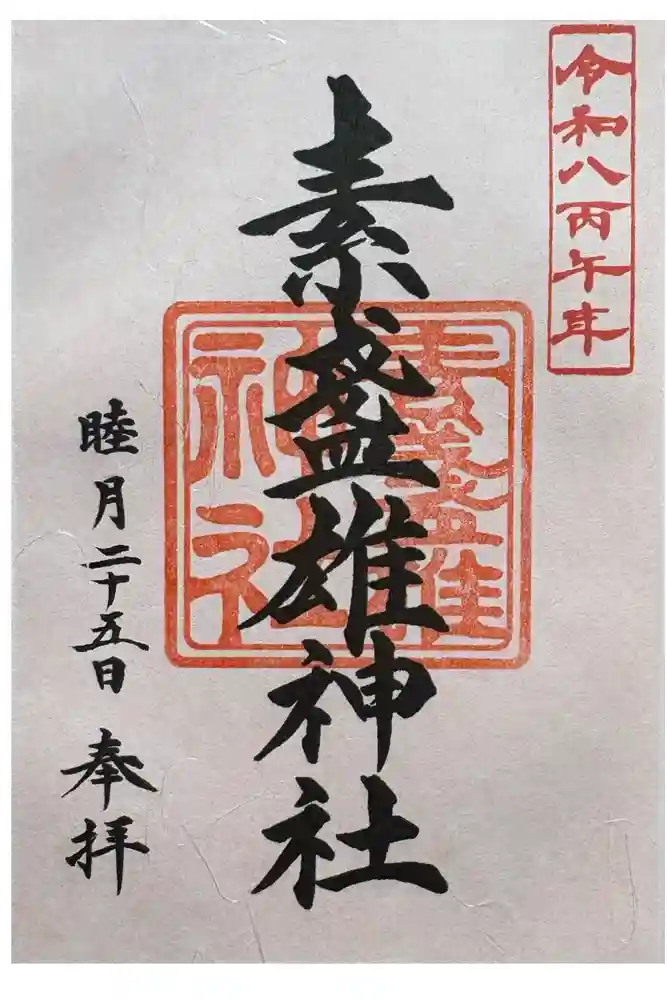 令和八丙午年
素盞雄神社
素盞雄
神社
睦月二十五日 奉拝